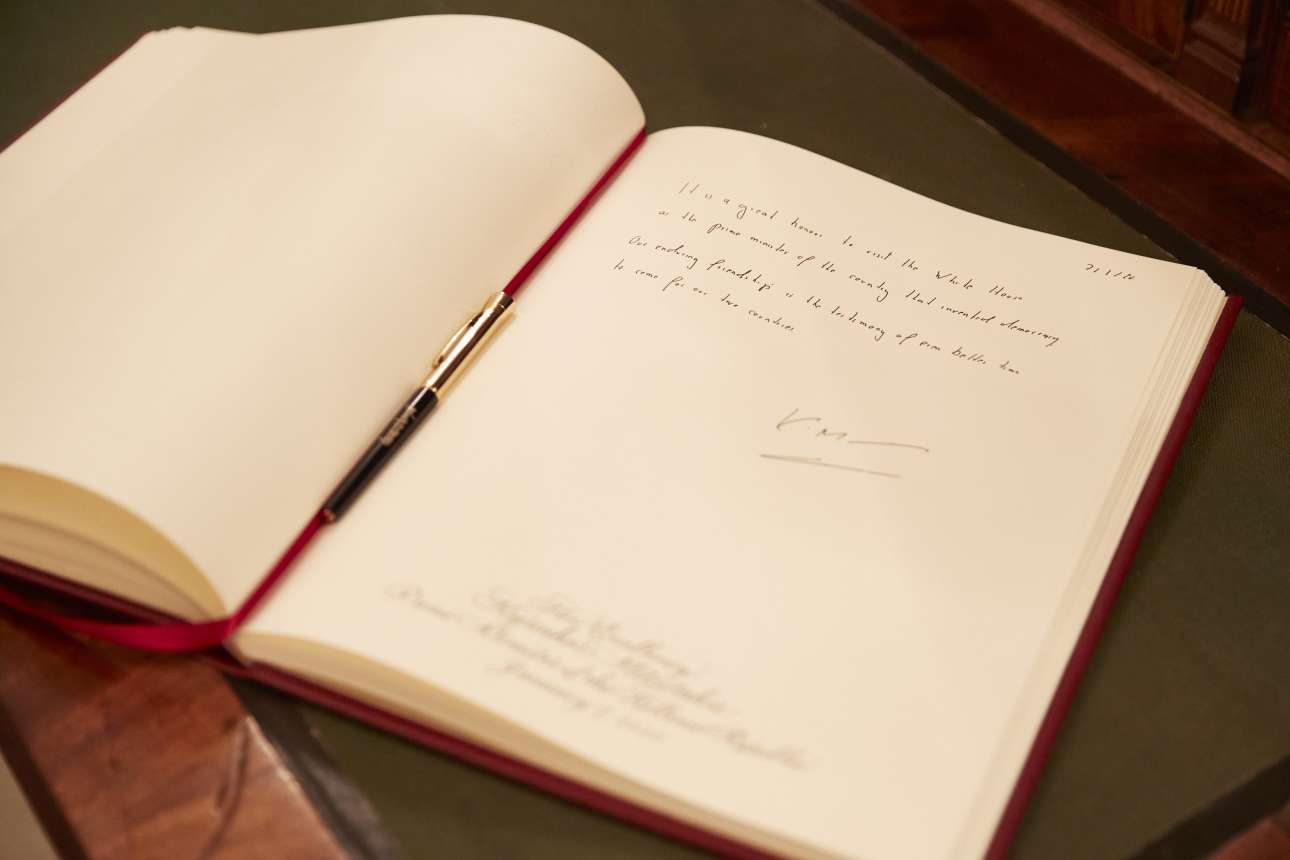 7/1/20
It is a great honour to visit the White House
as the prime minister of the country that invented democracy
Our enduring friendship is the testimony of even better time
to come for our two countries
K. M
His Excellency
Kyriakos Mitsotakis
Prime Minister of the Hellenic Republic
January 7, 2020